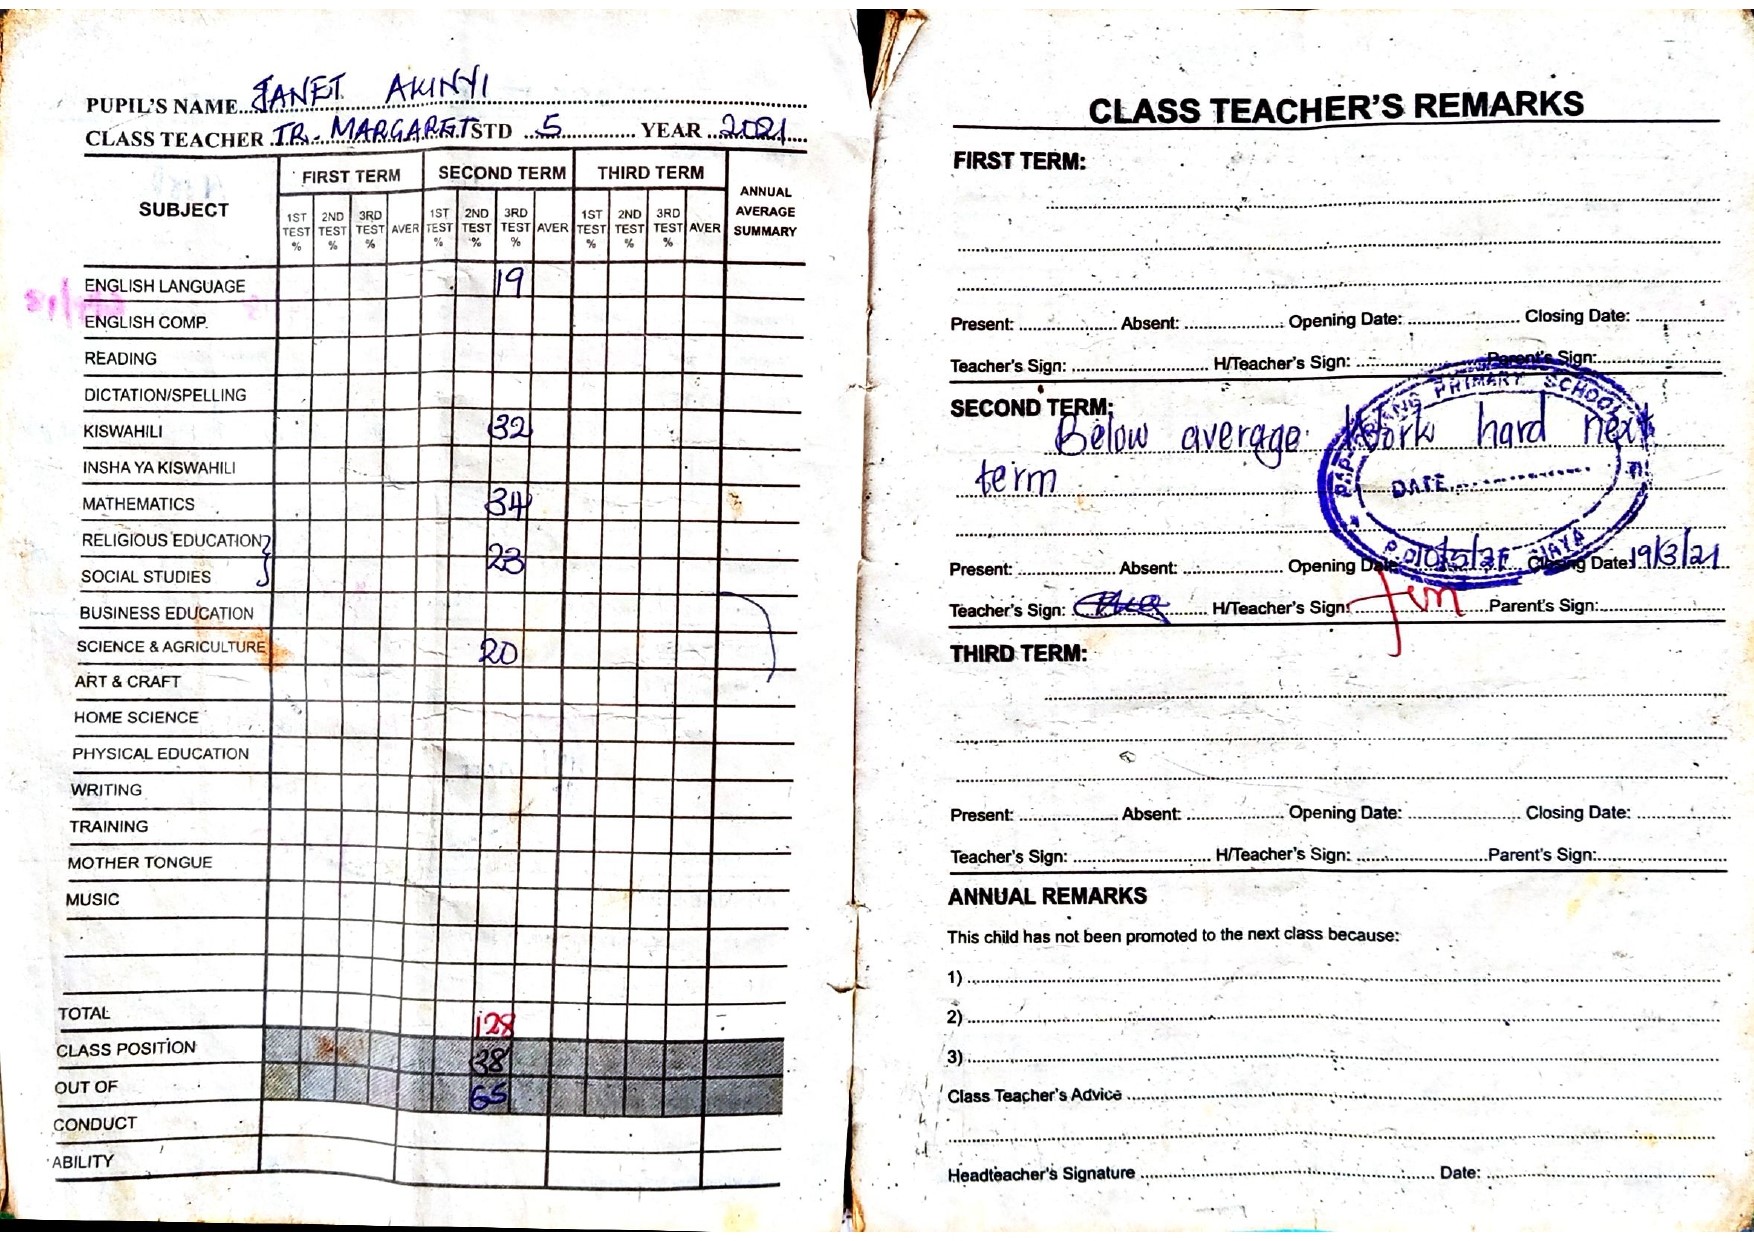 PUPIL'S NAME JANET AKINYI
CLASS TEACHER TR. MARGARET STD 5 YEAR 2021
SUBJECT FIRST TERM SECOND TERM THIRD TERM ANNUAL AVERAGE SUMMARY
1ST TEST % 2ND TEST % 3RD TEST % AVER 1ST TEST % 2ND TEST % 3RD TEST % AVER 1ST TEST % 2ND TEST % 3RD TEST % AVER
ENGLISH LANGUAGE 19
ENGLISH COMP.
READING
DICTATION/SPELLING
KISWAHILI 32
INSHA YA KISWAHILI
MATHEMATICS 34
RELIGIOUS EDUCATION
SOCIAL STUDIES 23
BUSINESS EDUCATION
SCIENCE & AGRICULTURE 20
ART & CRAFT
HOME SCIENCE
PHYSICAL EDUCATION
WRITING
TRAINING
MOTHER TONGUE
MUSIC
TOTAL 128
CLASS POSITION 38
OUT OF 65
CONDUCT
ABILITY
CLASS TEACHER'S REMARKS
FIRST TERM:
Present: Absent: Opening Date: Closing Date:
Teacher's Sign: H/Teacher's Sign: Parent's Sign:
SECOND TERM:
Below average. Work hard next
term
PRIMARY SCHOOL
DATE
SIAYA
Present: Absent: Opening Date: 10/5/21 Closing Date: 19/3/21
Teacher's Sign: H/Teacher's Sign: Parent's Sign:
THIRD TERM:
Present: Absent: Opening Date: Closing Date:
Teacher's Sign: H/Teacher's Sign: Parent's Sign:
ANNUAL REMARKS
This child has not been promoted to the next class because:
1)
2)
3)
Class Teacher's Advice
Headteacher's Signature Date: